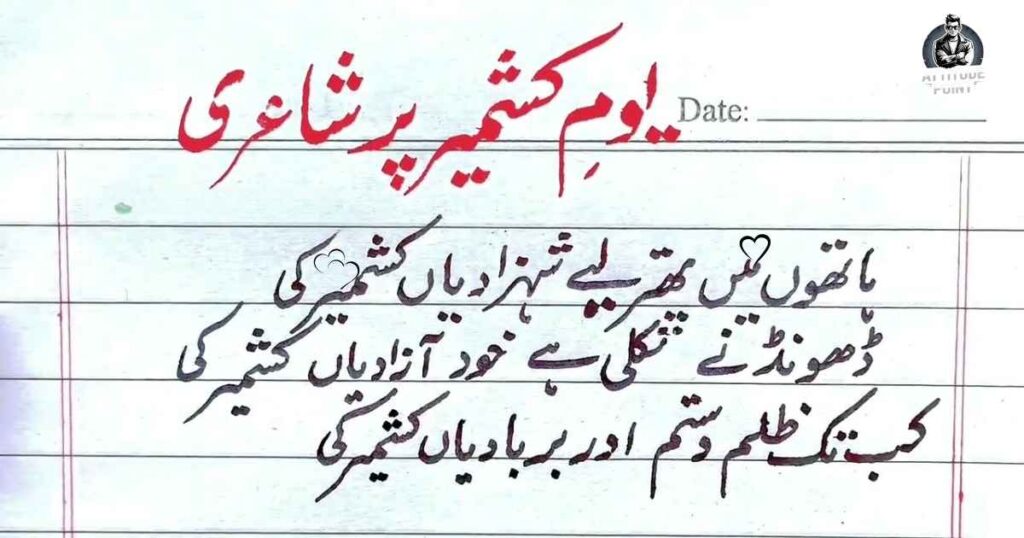 یومِ کشمیر پر شاعری
Date:
ATTITUDE POINT
ہاتھوں میں پتھر لیے شہزادیاں کشمیر کی
ڈھونڈنے نکلی ہے خود آزادیاں کشمیر کی
کب تک ظلم و ستم اور بربادیاں کشمیر کی